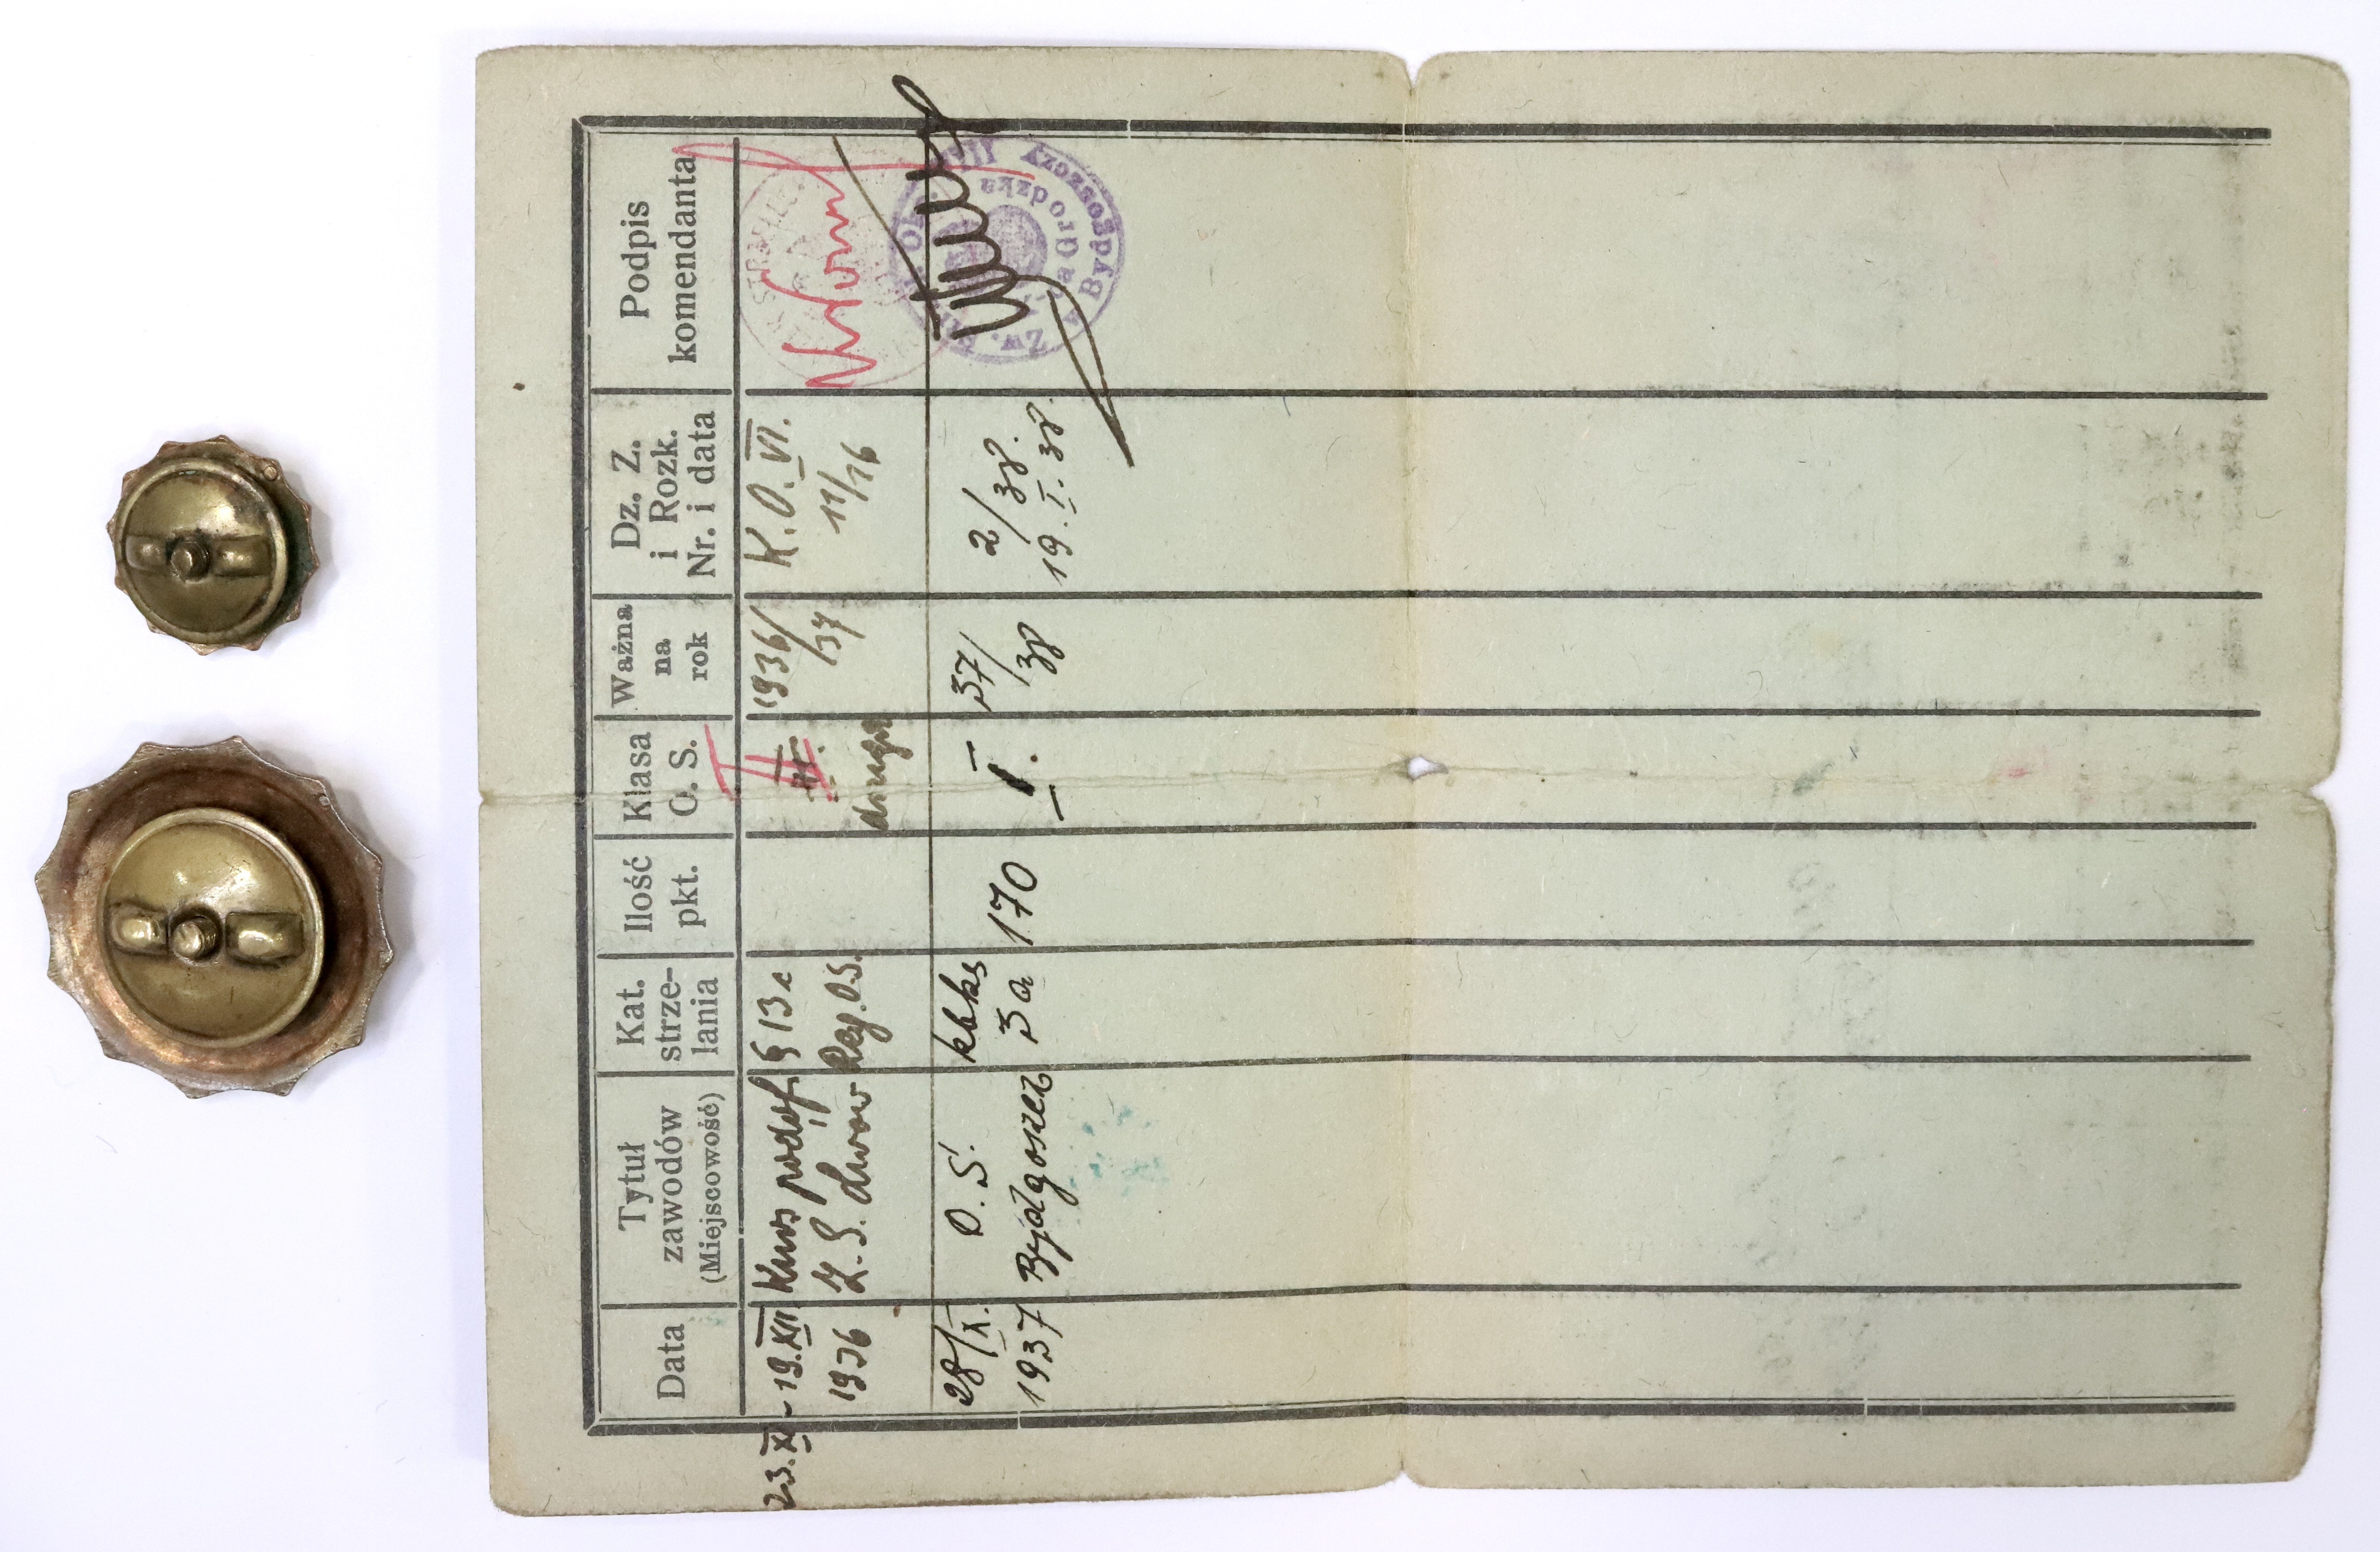 Data
Tytuł
zawodów
(Miejscowość)
Kat.
strze-
lania
Ilość
pkt.
Klasa
O. S.
Ważna
na
rok
Dz. Z.
i Rozk.
Nr. i data
Podpis
komendanta
23.XI - 19.XII
1936
Kurs podof.
Z. S. Lwów
§ 13 c
Reg. O.S.
II
druga
1936/
/37
K.O. VI.
11/36
STRZELEC
28/X.
1937
O. S.
Bydgoszcz
kbks
3 a
170
I.
37/
38
2/38.
19.I.38.
Zw.
VIII
Bydgoszczy
Grodzka